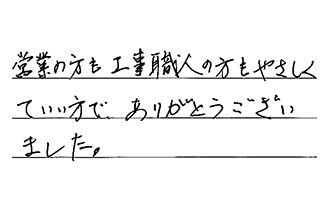 営業の方も工事職人の方もやさしく
ていい方で、ありがとうござい
ました。